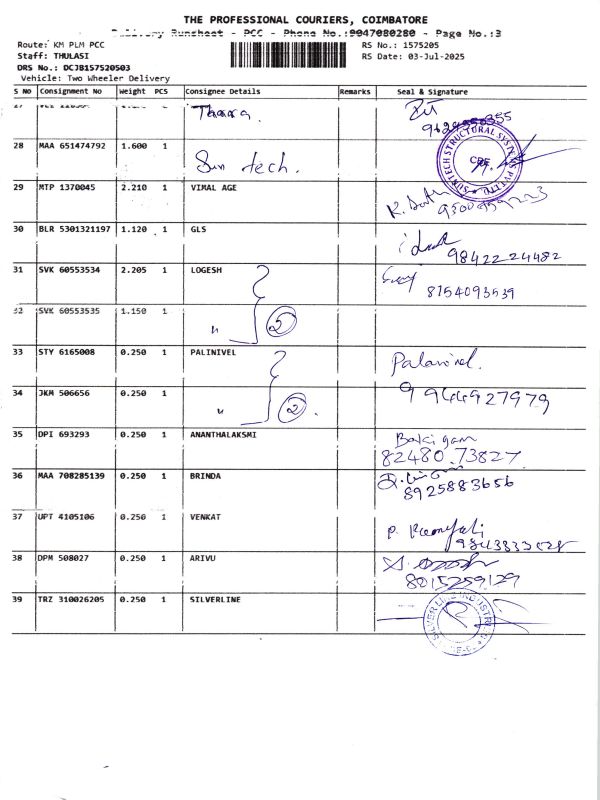 THE PROFESSIONAL COURIERS, COIMBATORE
Delivery Runsheet - PCC - Phone No.:9047080280 - Page No.:3
Route: KM PLM PCC
RS No.: 1575205
Staff: THULASI
RS Date: 03-Jul-2025
DRS No.: DCJB157520503
Vehicle: Two Wheeler Delivery
S NO Consignment No Weight PCS Consignee Details Remarks Seal & Signature
27 Thaara.
28 MAA 651474792 1.600 1 Sun tech.
SUNTECH STRUCTURAL SYSTEMS PVT LTD
CBE
29 MTP 1370045 2.210 1 VIMAL AGE
30 BLR 5301321197 1.120 1 GLS
98422 24482
31 SVK 60553534 2.205 1 LOGESH
8754093539
32 SVK 60553535 1.150 1 " 2
33 STY 6165008 0.250 1 PALINIVEL Palanivel.
34 JKM 506656 0.250 1 " 2. 9944927979
35 DPI 693293 0.250 1 ANANTHALAKSMI
82480 73827
36 MAA 708285139 0.250 1 BRINDA
8925883656
37 UPT 4105106 0.250 1 VENKAT
38 DPM 508027 0.250 1 ARIVU
8015259129
39 TRZ 310026205 0.250 1 SILVERLINE
SILVER LINE INDUSTRIES